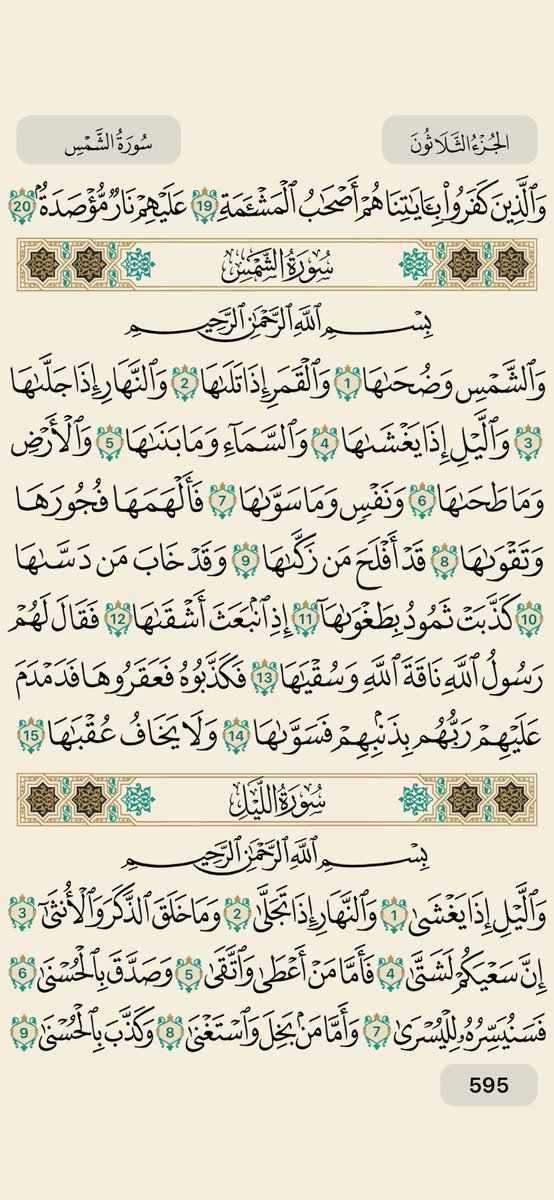 الجُزْءُ الثَّلَاثُونَ
سُورَةُ الشَّمْسِ
وَٱلَّذِينَ كَفَرُوا۟ بِـَٔايَـٰتِنَا هُمْ أَصْحَـٰبُ ٱلْمَشْـَٔمَةِ 19 عَلَيْهِمْ نَارٌ مُّؤْصَدَةٌۢ 20
سُورَةُ الشَّمْسِ
بِسْمِ ٱللَّهِ ٱلرَّحْمَـٰنِ ٱلرَّحِيمِ
وَٱلشَّمْسِ وَضُحَىٰهَا 1 وَٱلْقَمَرِ إِذَا تَلَىٰهَا 2 وَٱلنَّهَارِ إِذَا جَلَّىٰهَا
3 وَٱلَّيْلِ إِذَا يَغْشَىٰهَا 4 وَٱلسَّمَآءِ وَمَا بَنَىٰهَا 5 وَٱلْأَرْضِ
وَمَا طَحَىٰهَا 6 وَنَفْسٍ وَمَا سَوَّىٰهَا 7 فَأَلْهَمَهَا فُجُورَهَا
وَتَقْوَىٰهَا 8 قَدْ أَفْلَحَ مَن زَكَّىٰهَا 9 وَقَدْ خَابَ مَن دَسَّىٰهَا
10 كَذَّبَتْ ثَمُودُ بِطَغْوَىٰهَآ 11 إِذِ ٱنۢبَعَثَ أَشْقَىٰهَا 12 فَقَالَ لَهُمْ
رَسُولُ ٱللَّهِ نَاقَةَ ٱللَّهِ وَسُقْيَـٰهَا 13 فَكَذَّبُوهُ فَعَقَرُوهَا فَدَمْدَمَ
عَلَيْهِمْ رَبُّهُم بِذَنۢبِهِمْ فَسَوَّىٰهَا 14 وَلَا يَخَافُ عُقْبَـٰهَا 15
سُورَةُ اللَّيْلِ
بِسْمِ ٱللَّهِ ٱلرَّحْمَـٰنِ ٱلرَّحِيمِ
وَٱلَّيْلِ إِذَا يَغْشَىٰ 1 وَٱلنَّهَارِ إِذَا تَجَلَّىٰ 2 وَمَا خَلَقَ ٱلذَّكَرَ وَٱلْأُنثَىٰٓ 3
إِنَّ سَعْيَكُمْ لَشَتَّىٰ 4 فَأَمَّا مَنْ أَعْطَىٰ وَٱتَّقَىٰ 5 وَصَدَّقَ بِٱلْحُسْنَىٰ 6
فَسَنُيَسِّرُهُۥ لِلْيُسْرَىٰ 7 وَأَمَّا مَنۢ بَخِلَ وَٱسْتَغْنَىٰ 8 وَكَذَّبَ بِٱلْحُسْنَىٰ 9
595